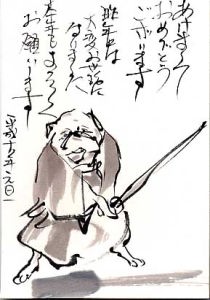 あけまして
おめでとう
ございます
昨年は
大変お世話に
なりました
本年もよろしく
お願いします
平成十五年元旦